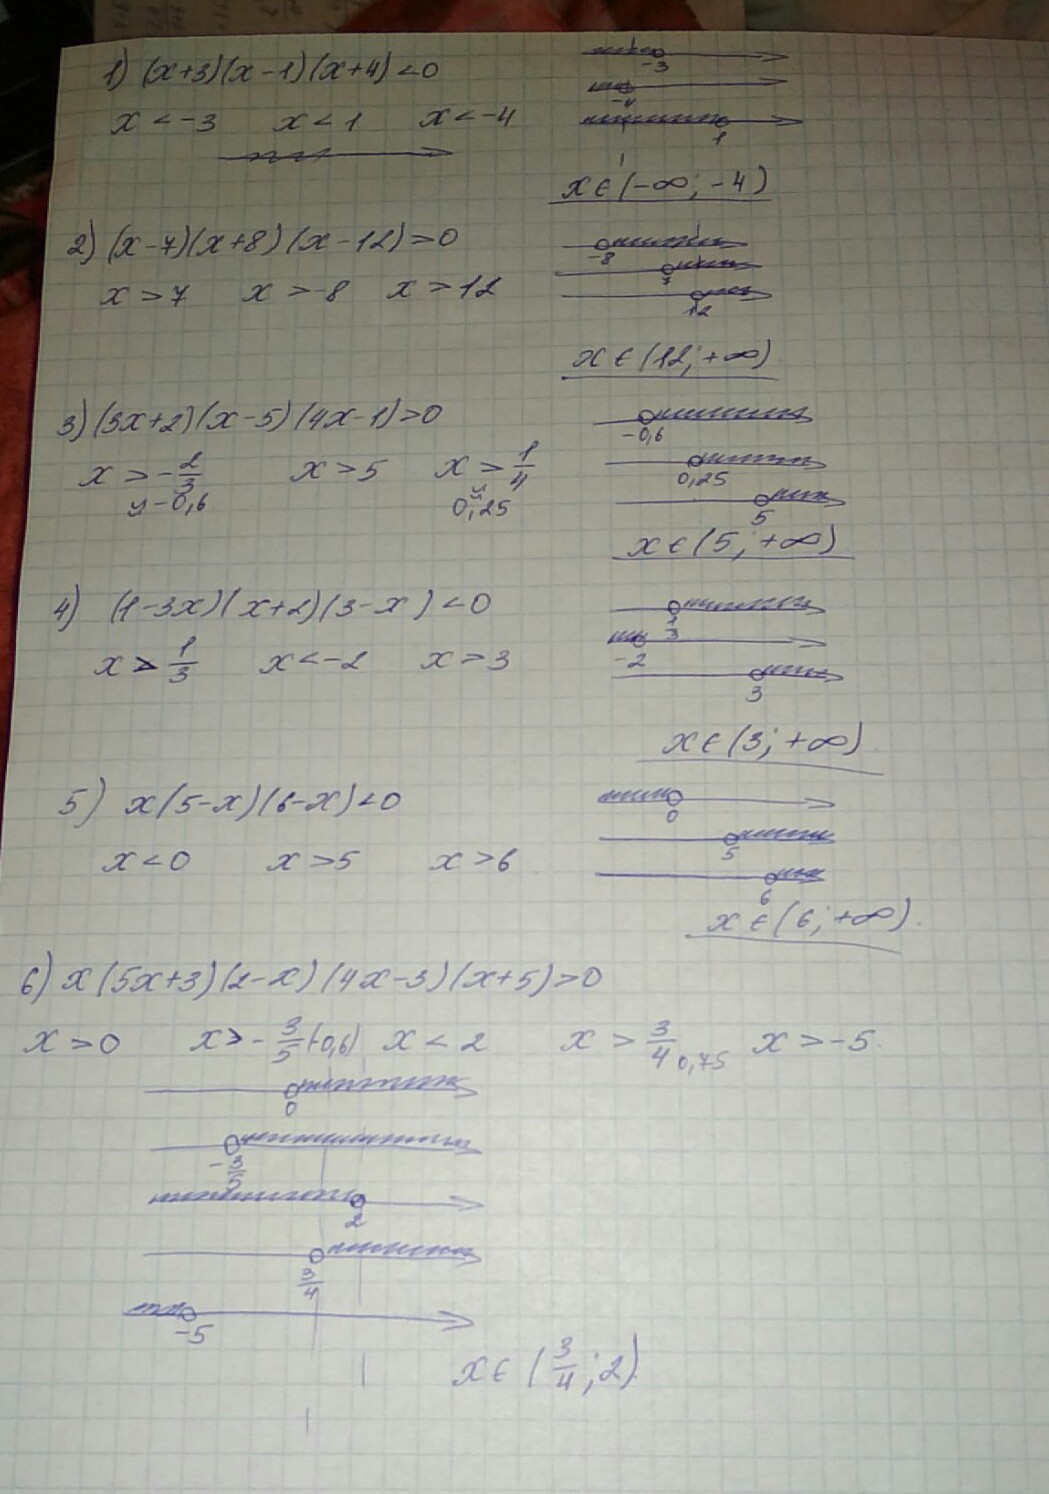 1) (x+3)(x-1)(x+4)<0
x<-3 x<1 x<-4
-3
-4
1
x∈(-∞; -4)
2) (x-7)(x+8)(x-12)>0
x>7 x>-8 x>12
-8
7
12
x∈(12; +∞)
3) (3x+2)(x-5)(4x-1)>0
x>-2/3 x>5 x>1/4
-0,6 0,25
-0,6
0,25
5
x∈(5; +∞)
4) (1-3x)(x+2)(3-x)<0
x>1/3 x<-2 x>3
1/3
-2
3
x∈(3; +∞)
5) x(5-x)(6-x)<0
x<0 x>5 x>6
0
5
6
x∈(6; +∞).
6) x(5x+3)(2-x)(4x-3)(x+5)>0
x>0 x>-3/5(-0,6) x<2 x>3/4 0,75 x>-5.
0
-3/5
2
3/4
-5
x∈(3/4; 2)